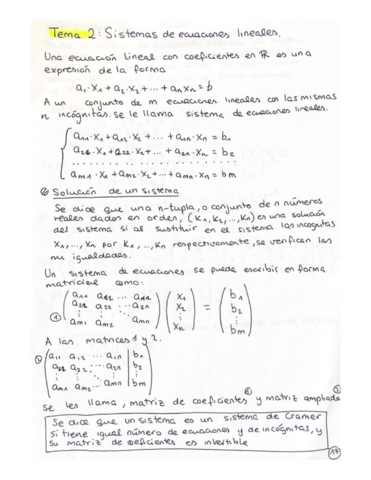 Tema 2: Sistemas de ecuaciones lineales.
Una ecuación lineal con coeficientes en ℝ es una
expresión de la forma
a₁·x₁+a₂·x₂+...+aₙxₙ=b
A un conjunto de m ecuaciones lineales con las mismas
n incógnitas. se le llama sistema de ecuaciones lineales.
a₁₁·x₁+a₁₂·x₂+...+a₁ₙ·xₙ=b₁
a₂₁·x₁+a₂₂·x₂+...+a₂ₙ·xₙ=b₂
. . . . . . . . . . . . . . . . . . . .
aₘ₁·x₁+aₘ₂·x₂+...+aₘₙ·xₙ=bm
Solución de un sistema
Se dice que una n-tupla, o conjunto de n números
reales dados en orden, (k₁,k₂,...,kₙ) es una solución
del sistema si al sustituir en el sistema las incógnitas
x₁,...,xₙ por k₁,...,kₙ respectivamente, se verifican las
m igualdades.
Un sistema de ecuaciones se puede escribir en forma
matricial como:
a₁₁ a₁₂ ... a₁ₙ x₁ b₁
a₂₁ a₂₂ ... a₂ₙ x₂ = b₂
⋮ ⋮ ⋮
① am₁ am₂ ... amn xₙ bm
A las matrices 1 y 2.
② a₁₁ a₁₂ ... a₁ₙ | b₁
a₂₁ a₂₂ ... a₂ₙ | b₂
⋮ ⋮
am₁ am₂ ... amn | bm
① ②
se les llama, matriz de coeficientes y matriz ampliada
Se dice que un sistema es un sistema de Cramer
si tiene igual número de ecuaciones y de incógnitas, y
su matriz de coeficientes es invertible
17